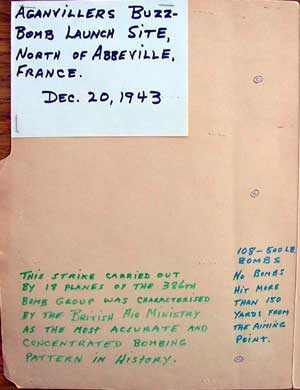 AGANVILLERS BUZZ-
BOMB LAUNCH SITE,
NORTH OF ABBEVILLE,
FRANCE.
DEC. 20, 1943
THIS STRIKE CARRIED OUT
BY 18 PLANES OF THE 386TH
BOMB GROUP WAS CHARACTERISED
BY THE BRITISH AIR MINISTRY
AS THE MOST ACCURATE AND
CONCENTRATED BOMBING
PATTERN IN HISTORY.
108-500LB
BOMBS
NO BOMBS
HIT MORE
THAN 150
YARDS FROM
THE AIMING
POINT.